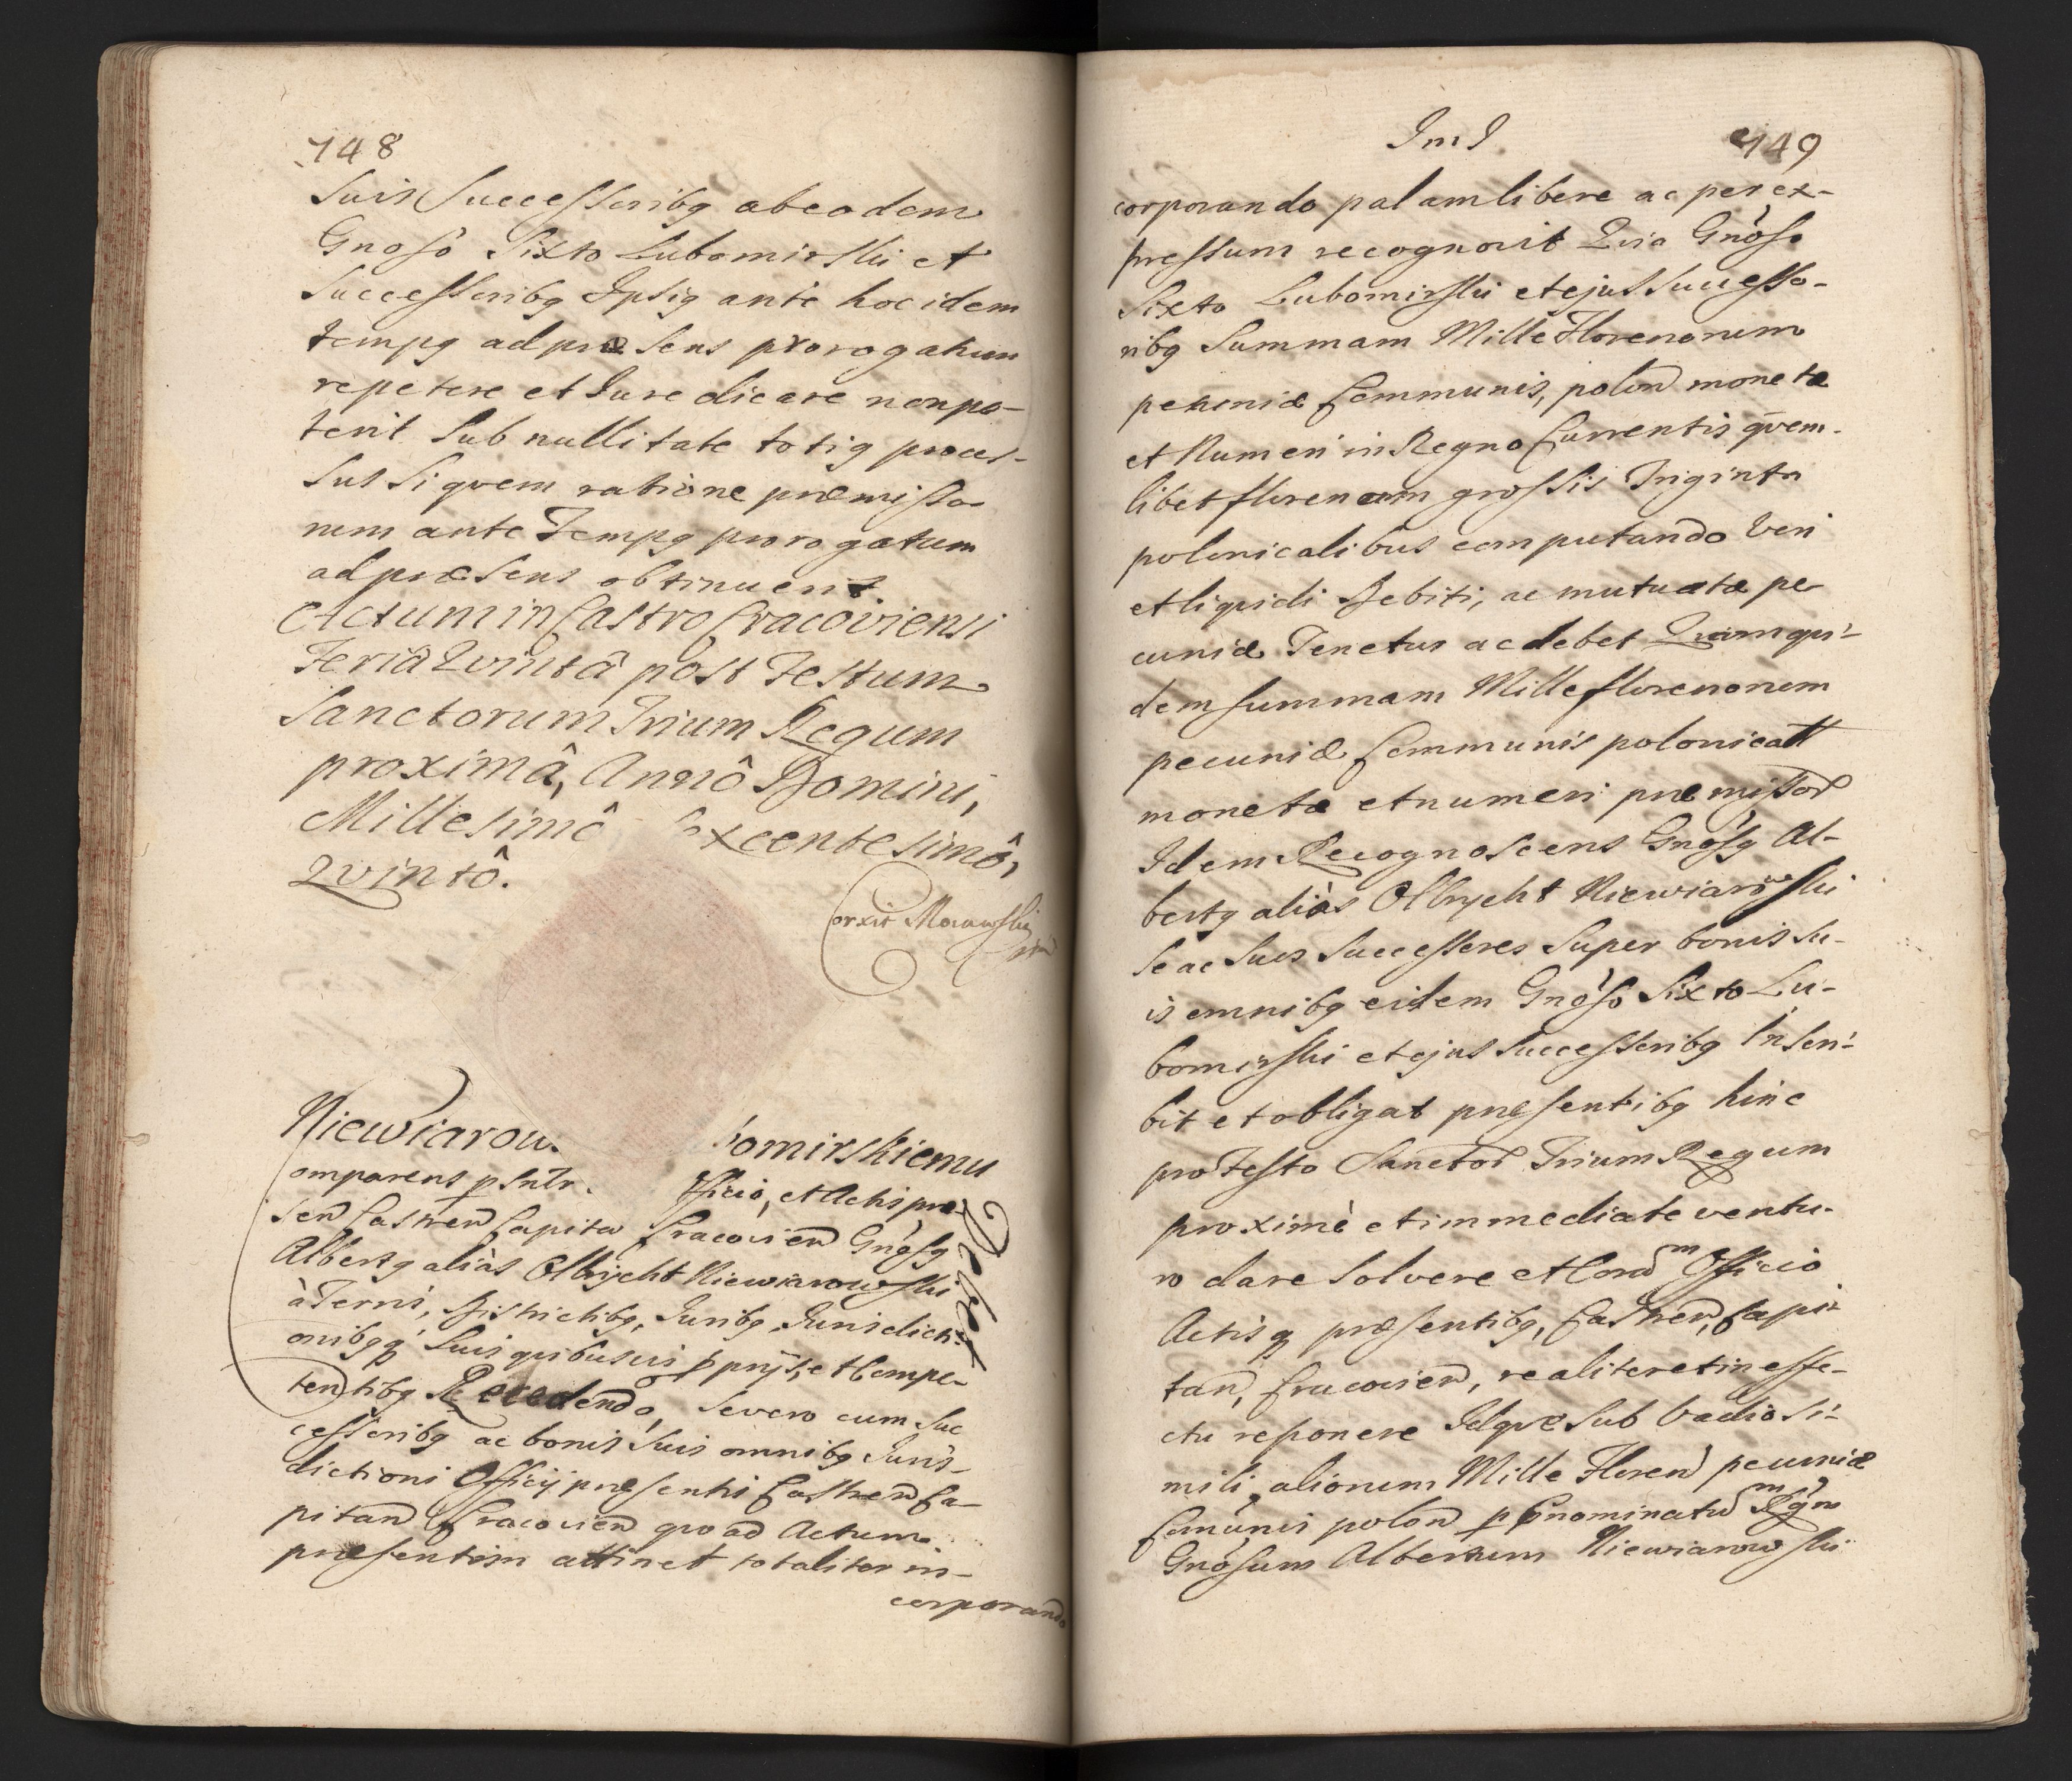 148
Suis Successoribq ab eodem
Gnoso Sixto Lubomirski et
Successoribq Ipsiq ante hoc idem
tempq ad præsens prorogatum
repetere et Iure dicare non po-
terit Sub nullitate totiq proces-
sus si qvem ratione præmisso-
rum ante Tempq prorogatum
ad præsens obtinuerit
Actum in Castro Cracoviensi
Feriâ Qvintâ post Festum
Sanctorum Trium Regum
proximâ, Annô Domini,
Millesimô excentesimô,
Qvintô.
Corxit Morawski
Niewiarow. omirskiemu
Debet
omparens p fficio, et Actis præ
sen Castren Capita Cracovien Gnosq
Albertq aliàs Olbrycht Niewiarowski
à Terris, Districtibq, Iuribq, Iurisdicti-
onibqq Suis qvibusvis pprijs, et Compe-
tentibq Recedendo, Se vero cum Suc
cessoribq ac bonis Suis omnibq Iuris-
dictioni Officij præsentis Castren Ca-
pitan Cracovien qvo ad Actum
præsentem attinet totaliter in-
corporando
ImI 149
corporando palam libere ac per ex-
pressum recognovit Qvia Gnoso
Sixto Lubomirski et ejus Successo-
ribq Summam Mille Florenorum
pecuniæ Communis, polon monetæ
et Numeri in Regno Currentis qvem-
libet florenum grossis Triginta
polonicalibus computando Veri
et liqvidi Debiti, ac mutuatæ pe
cuniæ Tenetur ac debet Qvam qvi-
dem summam Mille florenorum
pecuniæ Communis polonicall
monetæ et numeri præmissor
Idem Recognoscens Gnosq Al-
bertq aliàs Olbrycht Niewiarowski
Se ac Suos Successores Super bonis Su-
is omnibq eidem Gnoso Sixto Lu-
bomirski et ejus Successoribq Inscri-
bit et obligat præsentibq hinc
pro Festo Sanctor Trium Regum
proximè et immediate ventu-
ro dare Solvere et Coram Officio
Actisq præsentibq, Castren, Capi-
tan, Cracovien, realiter et in effe-
ctu reponere Idqve Sub Vadio Si-
mili, aliorum Mille Floren pecuniæ
Comunis polon p Enominatum Rgm
Gnosum Albertum Niewiarowski